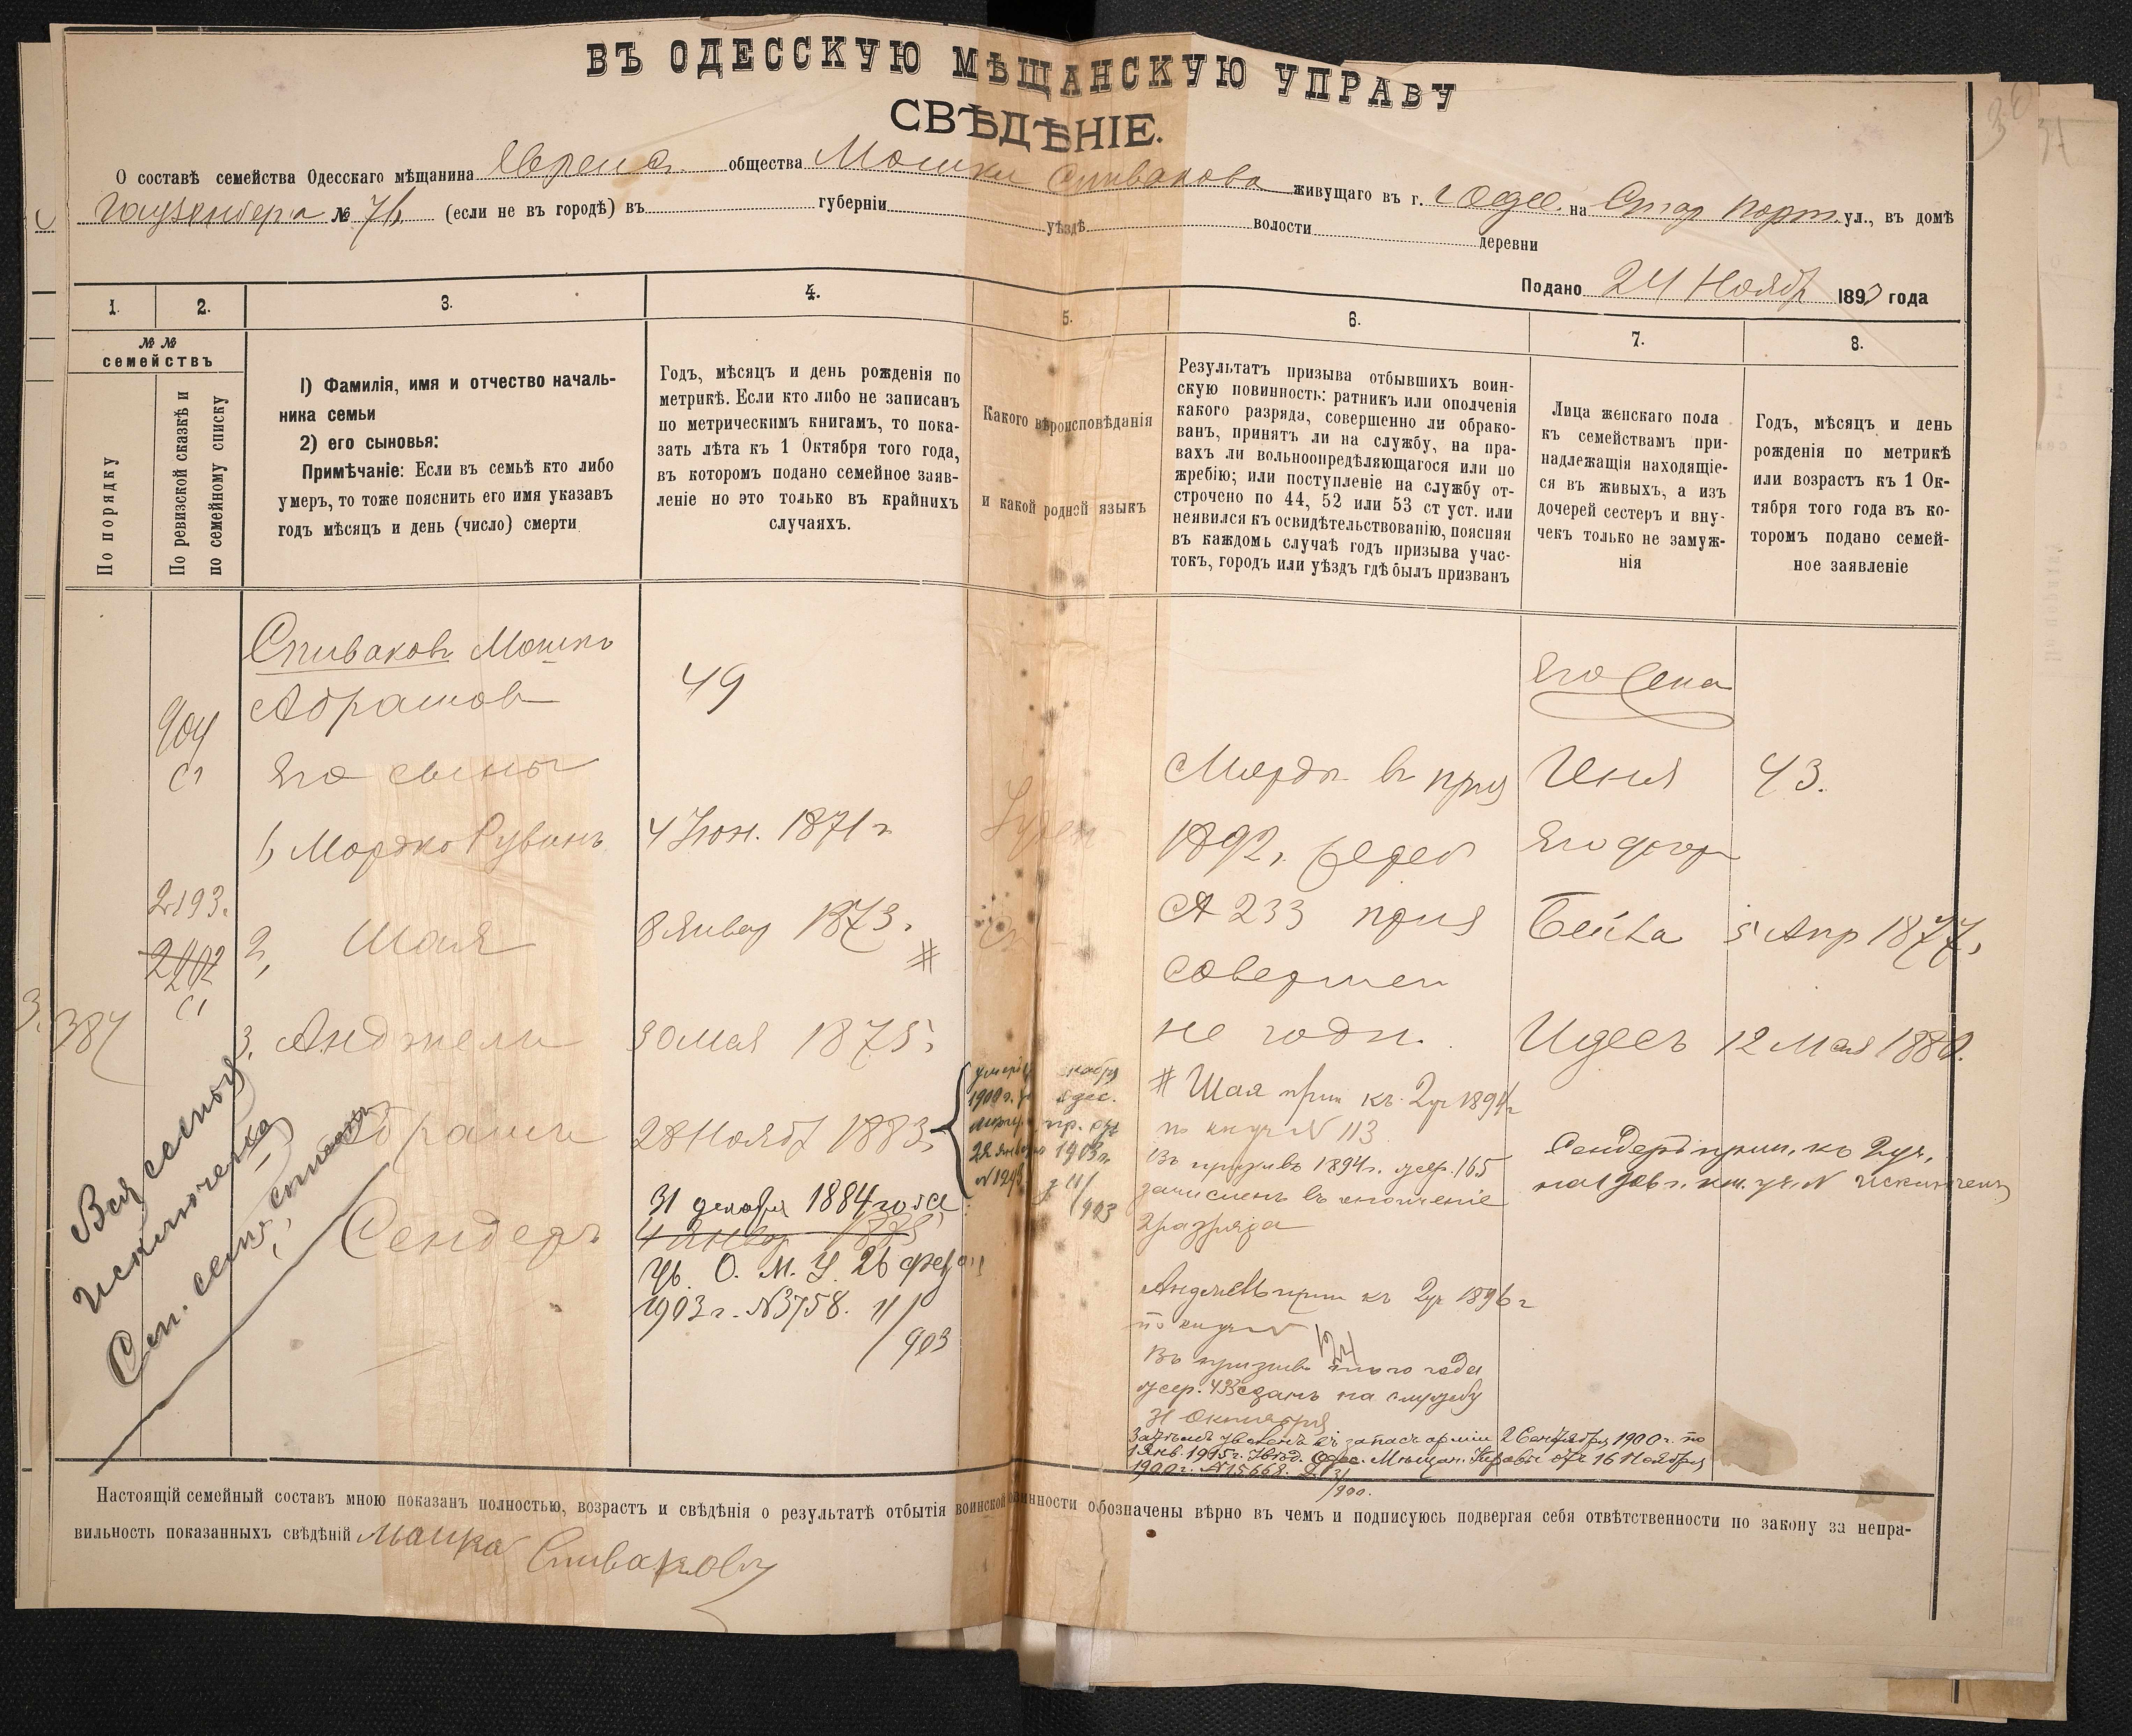 ВЪ ОДЕССКУЮ МѢЩАНСКУЮ УПРАВУ
СВѢДѢНІЕ.
О составѣ семейства Одесскаго мѣщанина Евреис. общества Мошки Спивакова живущаго въ г. Одес. на Стар порт. ул., въ домѣ
№ 76 (если не въ городѣ) въ губерніи уѣздѣ волости деревни
Подано 24 Нояб 1893 года
1. 2. 3. 4. 5. 6. 7. 8.
№ №
семействъ
По порядку
По ревизской сказкѣ и
по семейному списку
1) Фамилія, имя и отчество началь-
ника семьи
2) его сыновья:
Примѣчаніе: Если въ семьѣ кто либо
умеръ, то тоже пояснить его имя указавъ
годъ мѣсяцъ и день (число) смерти
Годъ, мѣсяцъ и день рожденія по
метрикѣ. Если кто либо не записанъ
по метрическимъ книгамъ, то пока-
зать лѣта къ 1 Октября того года,
въ которомъ подано семейное заяв-
леніе но это только въ крайнихъ
случаяхъ.
Какого вѣроисповѣданія
и какой родной языкъ
Результатъ призыва отбывшихъ воин-
скую повинность: ратникъ или ополченія
какого разряда, совершенно ли обрако-
ванъ, принятъ ли на службу, на пра-
вахъ ли вольноопредѣляющагося или по
жребію; или поступленіе на службу от-
строчено по 44, 52 или 53 ст уст. или
неявился къ освидѣтельствованію, поясняя
въ каждомъ случаѣ годъ призыва учас-
токъ, городъ или уѣздъ гдѣ былъ призванъ
Лица женскаго пола
къ семействамъ при-
надлежащія находящіе-
ся въ живыхъ, а изъ
дочерей сестеръ и вну-
чекъ только не замуж-
нія
Годъ, мѣсяцъ и день
рожденія по метрикѣ
или возрастъ къ 1 Ок-
тября того года въ ко-
торомъ подано семей-
ное заявленіе
Спиваковъ Мошко
Абрамов
49
904
Его сыны
1, Мордко Рувинъ
4 Іюн. 1871 г
2193.
2402
2, Шая
8 Январ 1873. #
384
3. Анджели
30 Мая 1875.
Абрамъ
28 Нояб 1883.
Сендеръ
31 декабря 1884 года
4 Январ 1885
Ув. О. М. У. 26 февр
1903 г. N3758. 11/
903
1900 г.
1903 г.
Вся семья
Исключена
Мордк в при
1892,
233
совершен
не годн.
# Шая прип къ 2 уч 1894 г
по кн уч N 113
Въ призывъ 1894 г. жер. 165
зачисленъ въ ополченіе
2 разряда
прип къ 2 уч 1896 г
по кн уч N 124
Въ призывъ того года
жер. 433 сданъ на службу
31 Октября
Затѣмъ уволенъ въ запасъ арміи 2 Сентября 1900 г. по
1 Янв. 1915 г. Увѣд. Одес. Мѣщан. Управы отъ 16 Ноября
1900 г. N 15668.
Его жена
Ився 43.
Его дочер
Бейла 5 Апр 1877,
Идесъ 12 Мая 1880.
Сендеръ прип. къ 2 уч.
на 1906 г. кн. уч. N исключенъ
Настоящій семейный составъ мною показанъ полностью, возрастъ и свѣдѣнія о результатѣ отбытія воинской повинности обозначены вѣрно въ чемъ и подписуюсь подвергая себя отвѣтственности по закону за непра-
вильность показанныхъ свѣдѣній Мошка Спиваковъ